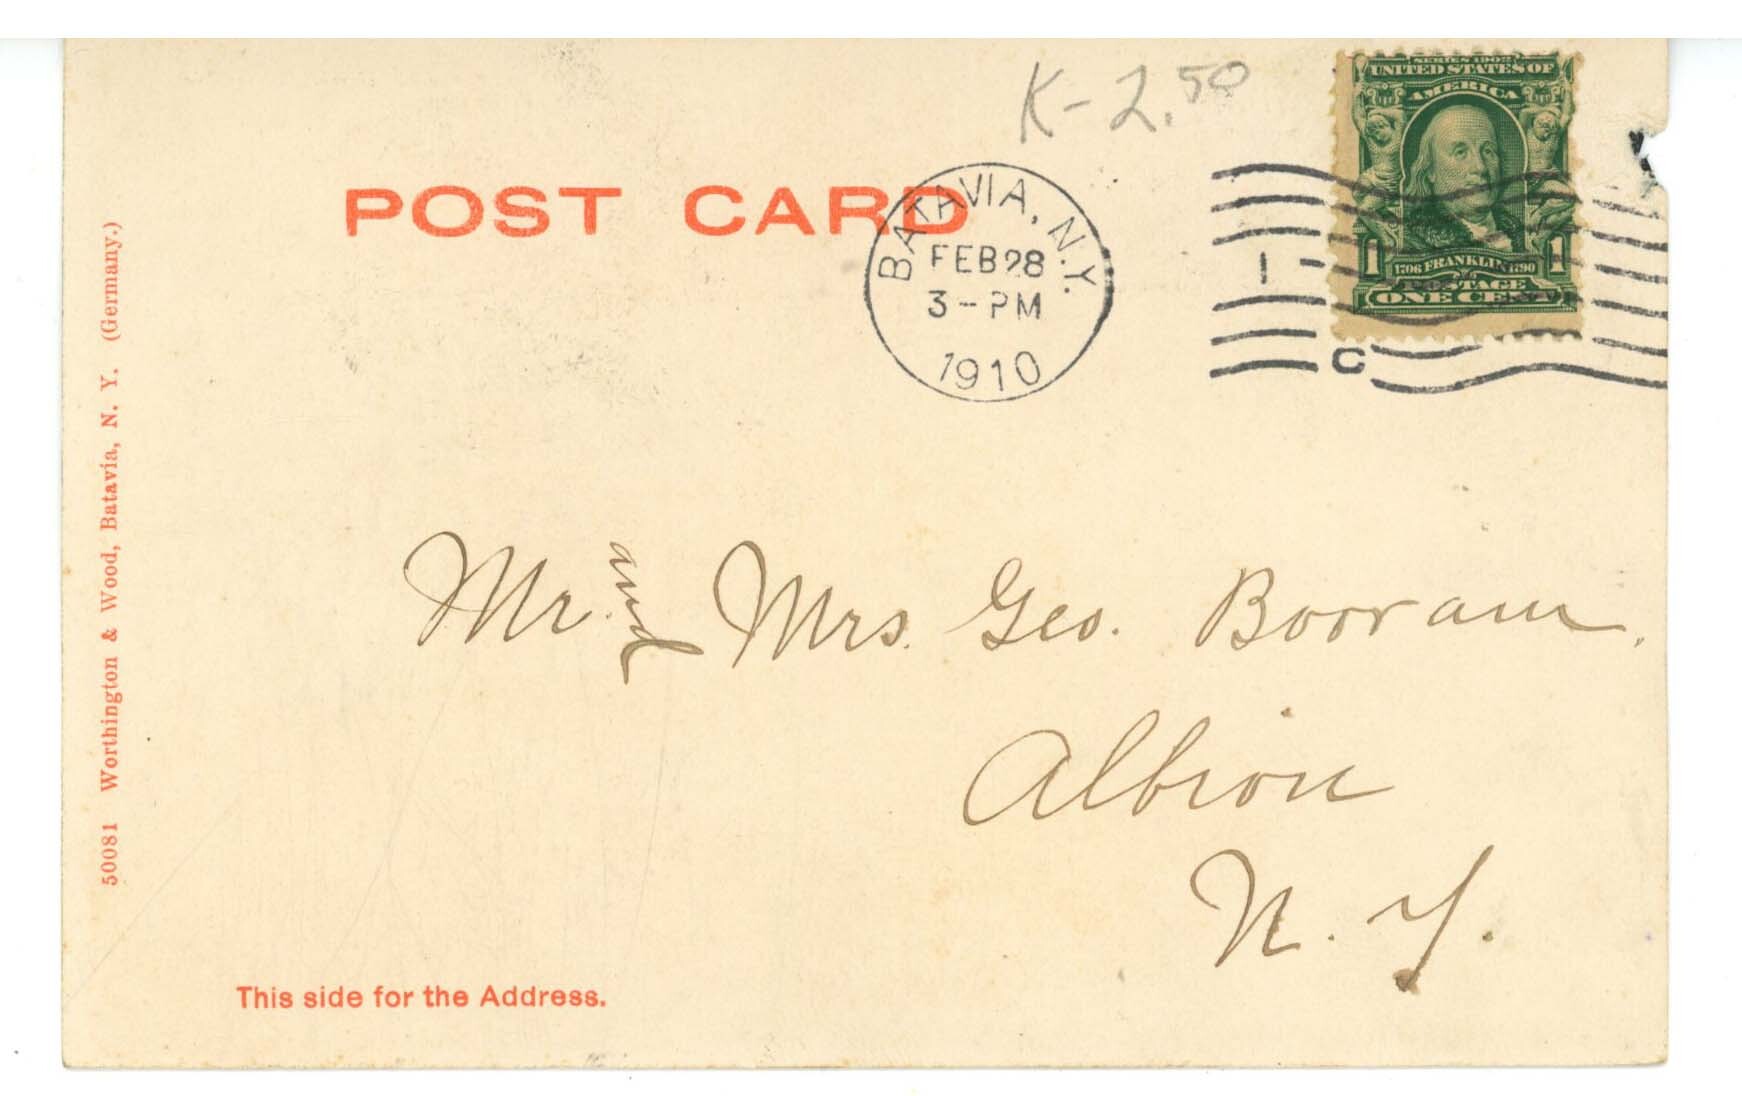 K-2.50
SERIES 1902
UNITED STATES OF
AMERICA
1 1706 FRANKLIN 1790 1
POSTAGE
ONE CENT
POST CARD
BATAVIA, N.Y.
FEB 28
3-PM
1910
1
C
Mr. and Mrs. Geo. Booram.
Albion
N. Y.
This side for the Address.
50081 Worthington & Wood, Batavia, N. Y. (Germany.)